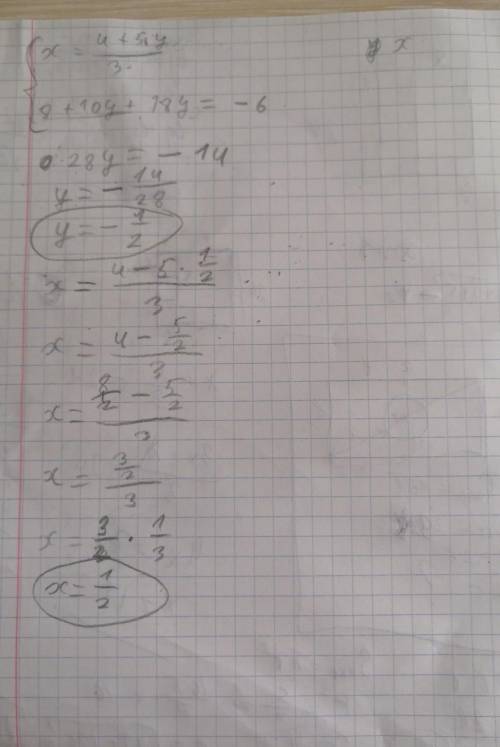 x = (4 + 5y)/3
x
8 + 10y + 18y = -6
28y = - 14
y = - 14/28
y = - 1/2
x = (4 - 5 · 1/2)/3
x = (4 - 5/2)/3
x = (8/2 - 5/2)/3
x = (3/2)/3
x = 3/2 · 1/3
x = 1/2